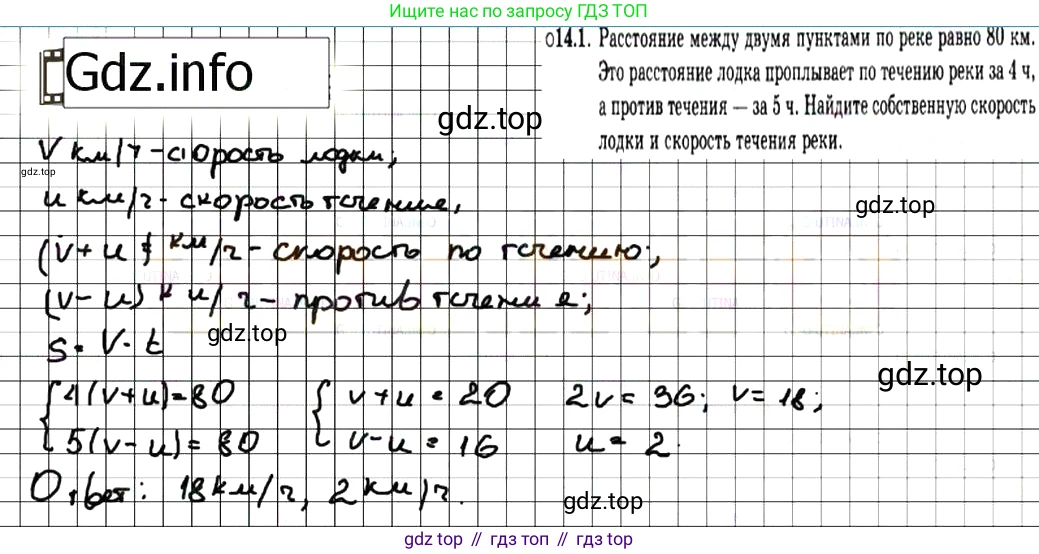 Ищите нас по запросу ГДЗ ТОП
Gdz.info
о14.1. Расстояние между двумя пунктами по реке равно 80 км.
Это расстояние лодка проплывает по течению реки за 4 ч,
а против течения — за 5 ч. Найдите собственную скорость
лодки и скорость течения реки.
gdz.top
V км/ч - скорость лодки;
gdz.top
u км/ч - скорость течения,
gdz.top
(v + u) км/ч - скорость по течению;
(v - u) км/ч - против течения;
gdz.top
S = V · t
gdz.top
{ 4(v+u)=80 { v+u = 20 2v = 36; v = 18;
5(v-u)=80 v-u = 16 u = 2.
Ответ: 18 км/ч, 2 км/ч.
gdz.top
gdz.top // гдз топ // гдз топ